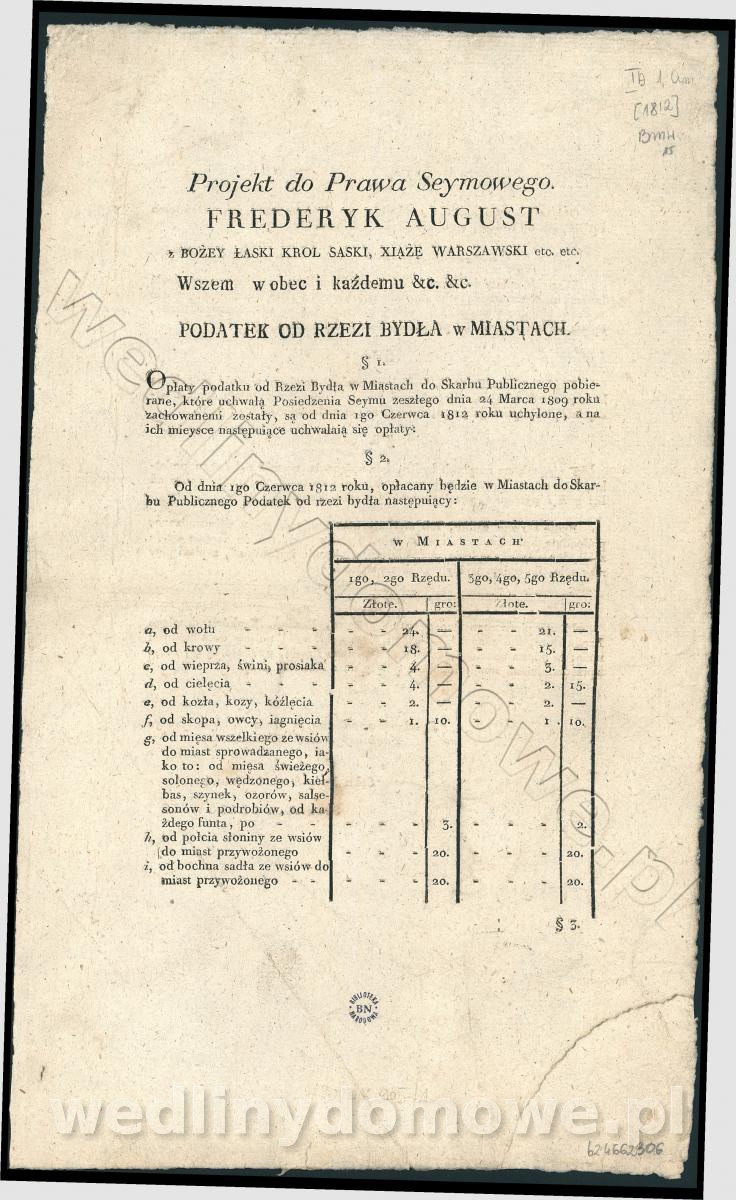 IB 1, Cim
[1812]
BMH.
Projekt do Prawa Seymowego.
FREDERYK AUGUST
z BOŻEY ŁASKI KROL SASKI, XIĄŻĘ WARSZAWSKI etc. etc.
Wszem wobec i każdemu &c. &c.
PODATEK OD RZEZI BYDŁA w MIASTACH.
§ 1.
Opłaty podatku od Rzezi Bydła w Miastach do Skarbu Publicznego pobie-
rane, które uchwałą Posiedzenia Seymu zeszłego dnia 24 Marca 1809 roku
zachowanemi zostały, są od dnia 1go Czerwca 1812 roku uchylone, a na
ich mieysce następuiące uchwalaią się opłaty:
§ 2.
Od dnia 1go Czerwca 1812 roku, opłacany będzie w Miastach do Skar-
bu Publicznego Podatek od rzezi bydła następuiący:
w MIASTACH
1go, 2go Rzędu. 3go, 4go, 5go Rzędu.
Złote. gro: Złote. gro:
a, od wołu - - - - - - 24. — - - 21. —
b, od krowy - - - - - - 18. — - - 15. —
c, od wieprza, świni, prosiaka - - 4. — - - 3. —
d, od cielęcia - - - - - 4. — - - 2. 15.
e, od kozła, kozy, kóźlęcia - - 2. — - - 2. —
f, od skopa, owcy, iagnięcia - - 1. 10. - - 1. 10.
g, od mięsa wszelkiego ze wsiów
do miast sprowadzanego, ia-
ko to: od mięsa świeżego,
solonego, wędzonego, kieł-
bas, szynek, ozorów, salse-
sonów i podrobiów, od ka-
żdego funta, po - - - - - 3. - - - 2.
h, od połcia słoniny ze wsiów
do miast przywożonego - - - 20. - - - 20.
i, od bochna sadła ze wsiów do
miast przywożonego - - - - - 20. - - - 20.
§ 3.
BIBLIOTEKA
BN
NARODOWA
wedlinydomowe.pl
wedlinydomowe.pl
624662306